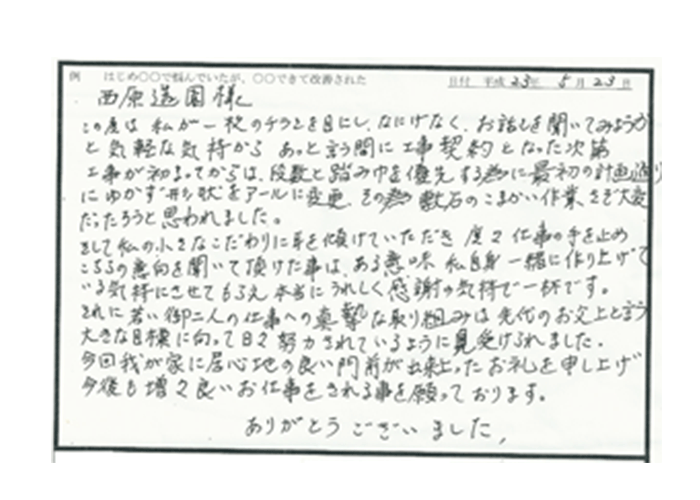 例 はじめ○○で悩んでいたが、○○できて改善された
日付 平成 23年 5月 23日
西原造園様
この度は 私が一枚のチラシを目にし、なにげなく、お話しを聞いてみようか
と気軽な気持から あっと言う間に工事契約となった次第
工事が初まってからは、段数と踏み巾を優先する為に最初の計画通り
にゆかず形状をアールに変更、その為敷石のこまかい作業、さぞ大変
だったろうと思われました。
そして私の小さなこだわりに耳を傾けていただき 度々仕事の手を止め
こちらの意向を聞いて頂けた事は、ある意味 私自身一緒に作り上げて
いる気持にさせてもらえ本当にうれしく感謝の気持で一杯です。
それに若い御二人の仕事への真摯な取り組みは先代のお父上と言う
大きな目標に向って日々努力されているように見受けられました。
今回我が家に居心地の良い門前が出来上ったお礼を申し上げ
今後も増々良いお仕事をされる事を願っております。
ありがとうございました,